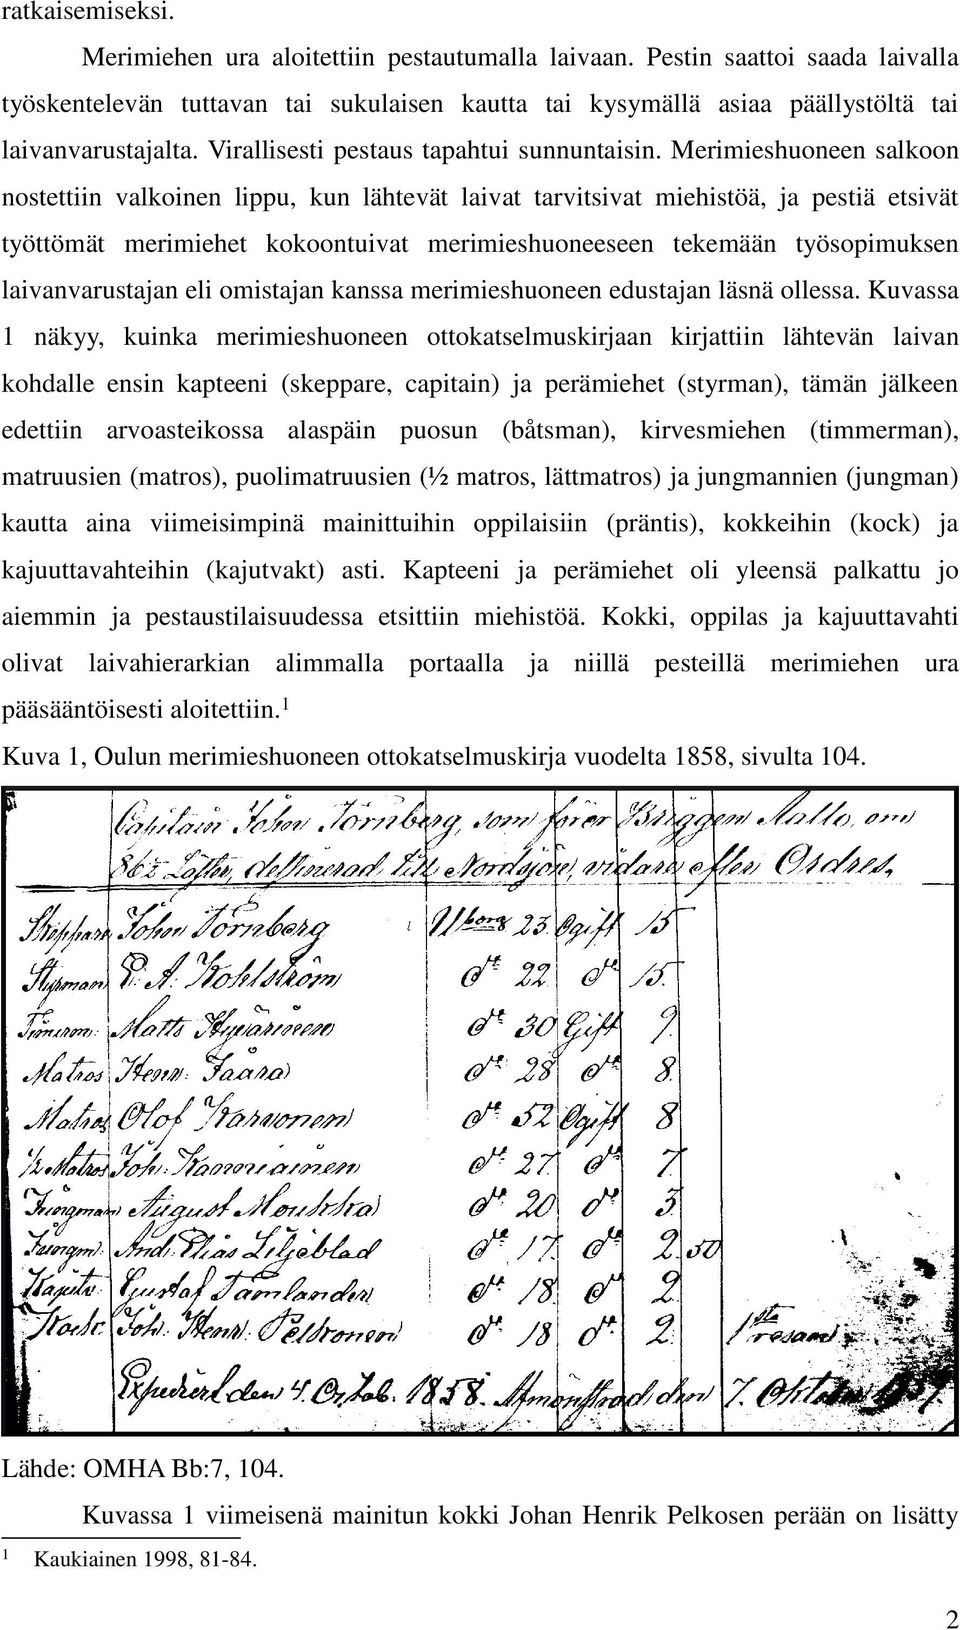 ratkaisemiseksi.
Merimiehen ura aloitettiin pestautumalla laivaan. Pestin saattoi saada laivalla
työskentelevän tuttavan tai sukulaisen kautta tai kysymällä asiaa päällystöltä tai
laivanvarustajalta. Virallisesti pestaus tapahtui sunnuntaisin. Merimieshuoneen salkoon
nostettiin valkoinen lippu, kun lähtevät laivat tarvitsivat miehistöä, ja pestiä etsivät
työttömät merimiehet kokoontuivat merimieshuoneeseen tekemään työsopimuksen
laivanvarustajan eli omistajan kanssa merimieshuoneen edustajan läsnä ollessa. Kuvassa
1 näkyy, kuinka merimieshuoneen ottokatselmuskirjaan kirjattiin lähtevän laivan
kohdalle ensin kapteeni (skeppare, capitain) ja perämiehet (styrman), tämän jälkeen
edettiin arvoasteikossa alaspäin puosun (båtsman), kirvesmiehen (timmerman),
matruusien (matros), puolimatruusien (½ matros, lättmatros) ja jungmannien (jungman)
kautta aina viimeisimpinä mainittuihin oppilaisiin (präntis), kokkeihin (kock) ja
kajuuttavahteihin (kajutvakt) asti. Kapteeni ja perämiehet oli yleensä palkattu jo
aiemmin ja pestaustilaisuudessa etsittiin miehistöä. Kokki, oppilas ja kajuuttavahti
olivat laivahierarkian alimmalla portaalla ja niillä pesteillä merimiehen ura
pääsääntöisesti aloitettiin.1
Kuva 1, Oulun merimieshuoneen ottokatselmuskirja vuodelta 1858, sivulta 104.
Capitain Johan Törnberg, som förer Briggen Aallo, om
86½ Läster, destinerad till Nordsjön, vidare efter Ordres.
Skeppare Johan Törnberg Uborg 23. Ogift 15
Styrman E. A. Kohlström do 22 do 15.
Timmerm: Matts Hyvärinen do 30 Gift 9.
Matros Henr: Jaara do 28 do 8.
Matros Olof Karvonen do 52 Ogift 8
½ Matros Joh: Kanniainen do 27. do 7.
Jungman August Moukka do 20 do 3.
Jungm: And: Elias Liljeblad do 17. do 2. 50
Kajutv: Gustaf Tamlander do 18. do 2.
Kock: Joh: Henr: Pelkonen do 18 do 2. 1sta resan
den 4. Octob. 1858. den 7. Oktober
Lähde: OMHA Bb:7, 104.
Kuvassa 1 viimeisenä mainitun kokki Johan Henrik Pelkosen perään on lisätty
1 Kaukiainen 1998, 81-84.
2